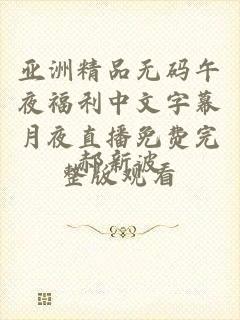 亚洲精品无码午
夜福利中文字幕
月夜直播免费完
整版观看
郝新波